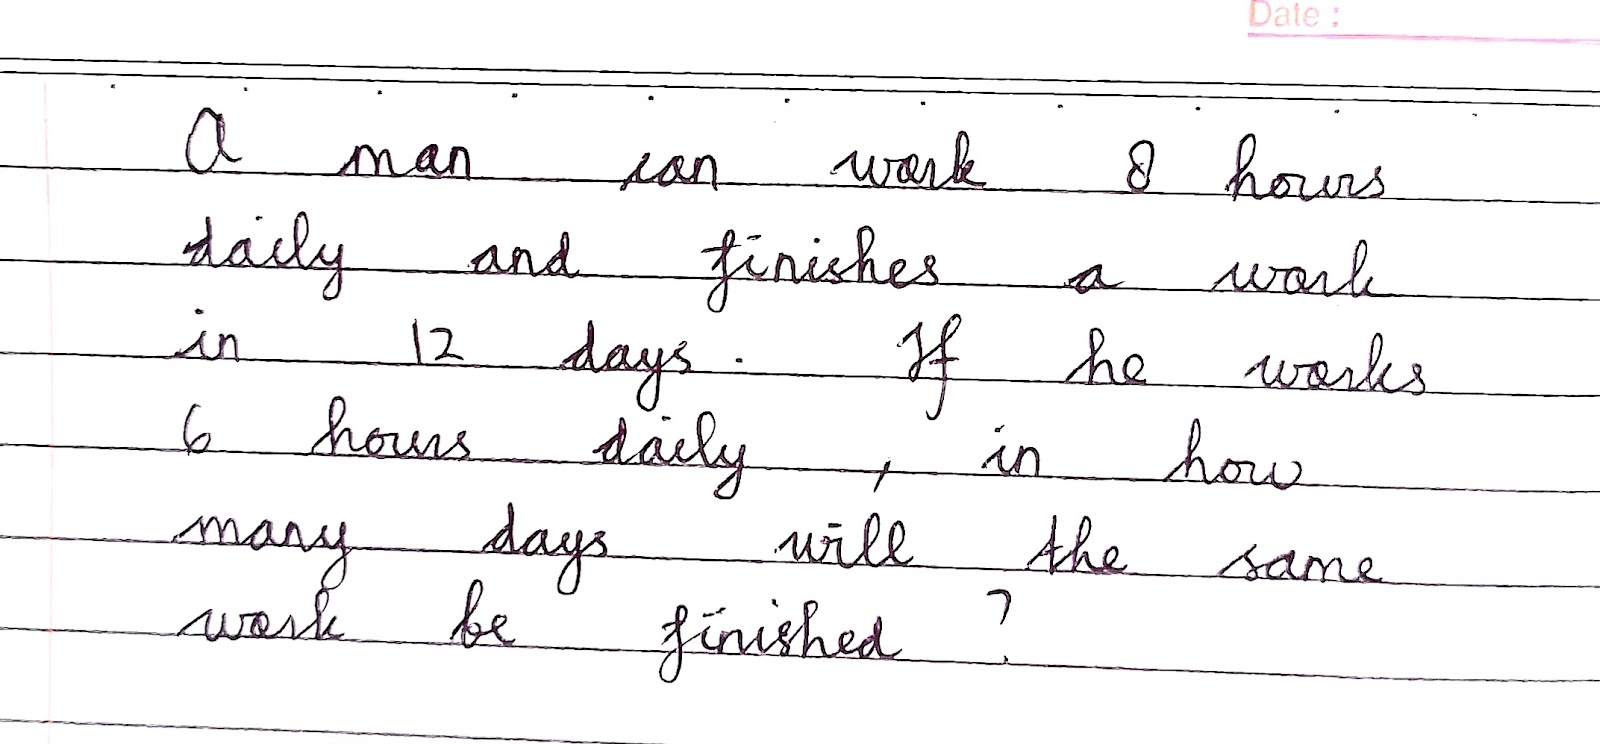 Date :
A man can work 8 hours
daily and finishes a work
in 12 days. If he works
6 hours daily, in how
many days will the same
work be finished ?